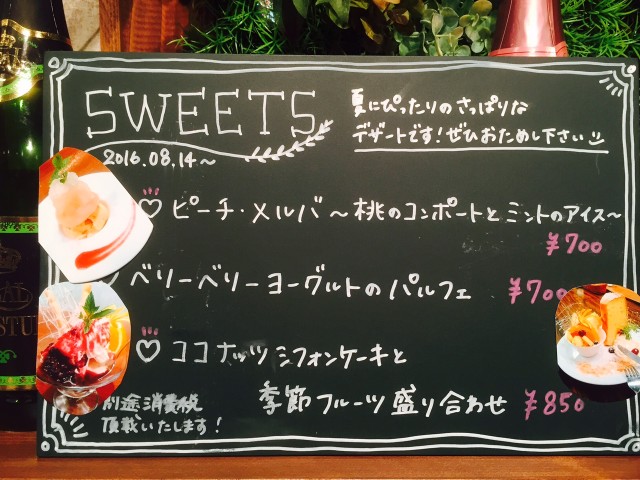 SWEETS
2016.08.14～
夏にぴったりのさっぱりな
デザートです！ぜひおためし下さい
♡ピーチ・メルバ～桃のコンポートとミントのアイス～
¥700
ベリーベリーヨーグルトのパルフェ ¥700
♡ココナッツシフォンケーキと
季節フルーツ盛り合わせ ¥850
別途消費税
頂戴いたします！